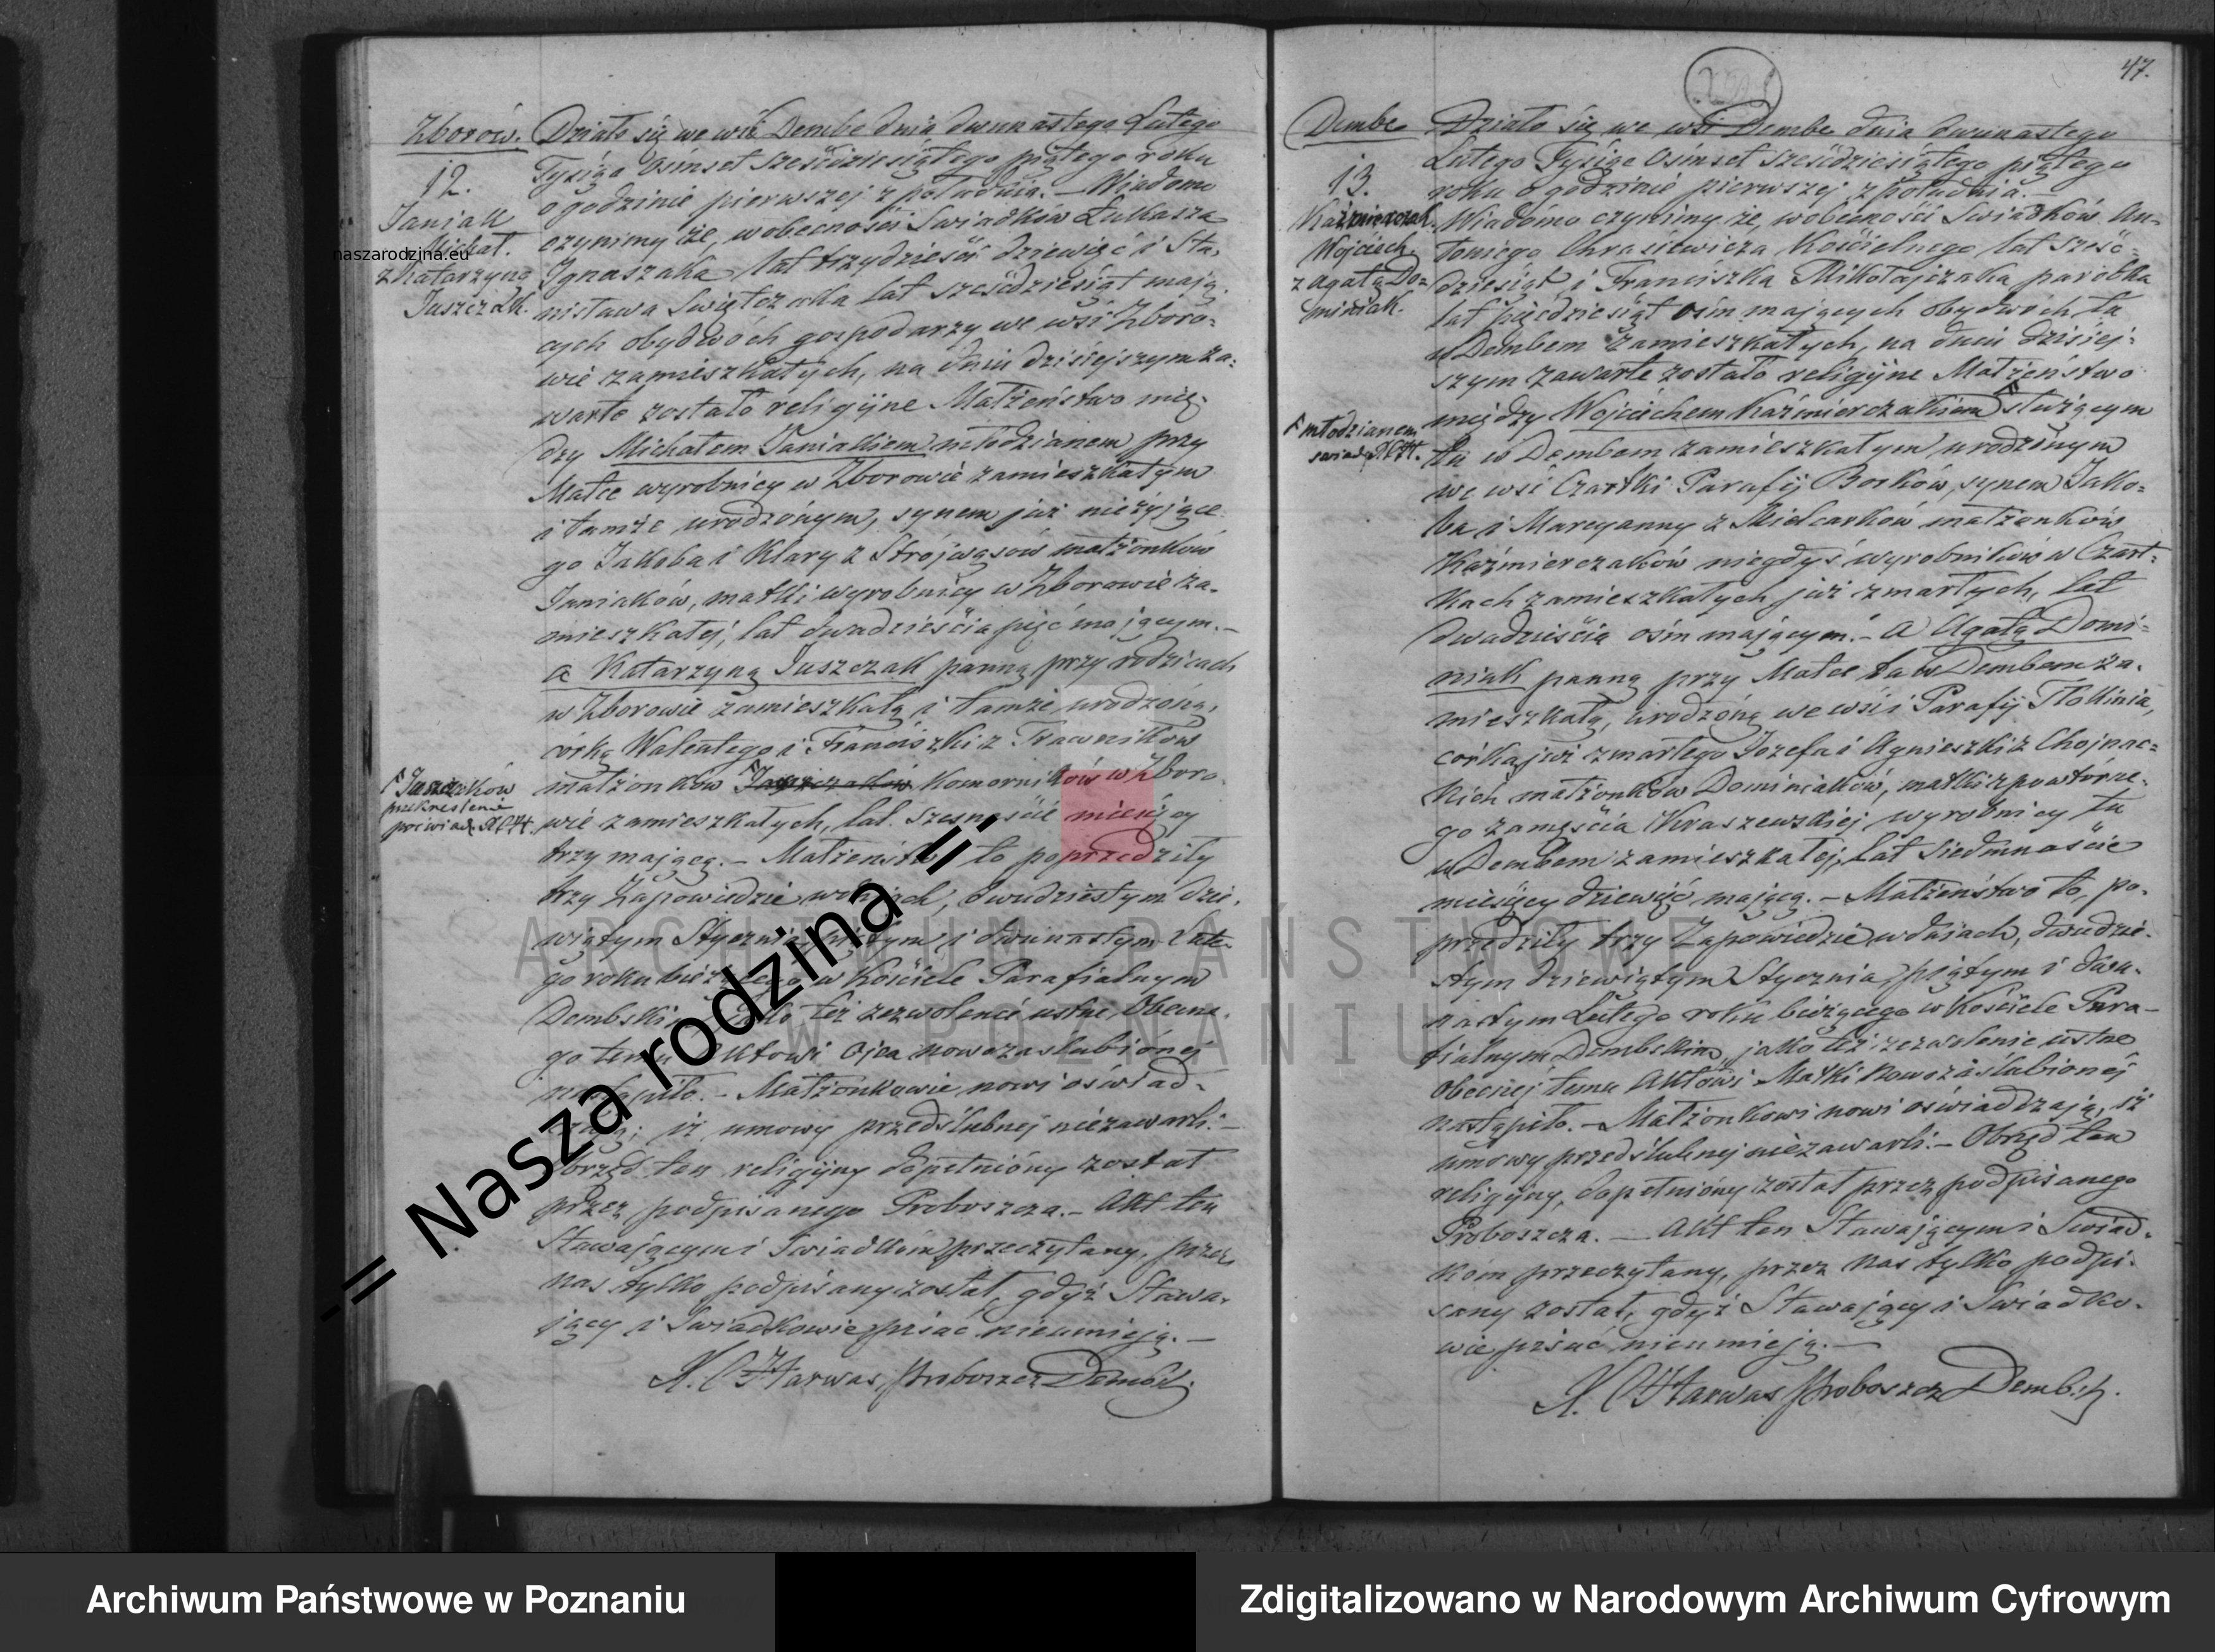 Zborów.
12.
Janiak
Michał.
z Katarzyną
Juszczak.
Działo się we wsi Dembe dnia dwunastego Lutego
Tysiąc Ośmset sześćdziesiątego piątego roku
o godzinie pierwszej z południa. — Wiadomo
czynimy że, w obecności Świadków Łukasza
Ignaszaka lat trzydzieści dziewięć i Sta-
nisława Świętczaka lat sześćdziesiąt mają-
cych obydwóch gospodarzy we wsi Zboro-
wie zamieszkałych, na dniu dzisiejszym za-
warte zostało religijne Małżeństwo mię-
dzy Michałem Janiakiem młodzianem przy
Matce wyrobnicy w Zborowie zamieszkałym
i tamże urodzonym, synem już nieżyjące-
go Jakóba i Klary z Strójwąsów małżonków
Janiaków, matki wyrobnicy w Zborowie za-
mieszkałej, lat dwadzieścia pięć mającym. —
a Katarzyną Juszczak panną przy rodzicach
w Zborowie zamieszkałą i tamże urodzoną,
córką Walentego i Franciszki z Trawników
małżonków Komorników w Zboro-
wie zamieszkałych, lat szesnaście miesięcy
trzy mającą. — Małżeństwo to poprzedziły
trzy Zapowiedzie w dniach, dwudziestym dzie-
wiątym Stycznia, piątym i dwunastym Lute-
go roku bieżącego w Kościele Parafialnym
Dembskim, jako też zezwolenie ustne Obecne-
go temu Aktowi Ojca nowozaślubionej
nastąpiło. — Małżonkowie nowi oświad-
czają; iż umowy przedślubnej niezawarli. —
Obrzęd ten religijny dopełniony został
przez podpisanego Proboszcza. — Akt ten
Stawającym i Świadkom przeczytany, przez
nas tylko podpisany został, gdyż Stawa-
jący i Świadkowie pisać nieumieją. —
X. C. Harwas, Proboszcz Dembski
Juszczaków
przekreślenie
poświad. X. C. H.
naszarodzina.eu
-= Nasza rodzina =-
ARCHIWUM PAŃSTWOWE
W POZNANIU
47.
Dembe
13.
Kaźmierczak
Wojciech
z Agatą Do-
miniak.
Działo się we wsi Dembe dnia dwunastego
Lutego Tysiąc Ośmset sześćdziesiątego piątego
roku o godzinie pierwszej z południa. —
Wiadomo czynimy że, w obecności Świadków An-
toniego Chrasiewicza Kościelnego lat sześć-
dziesiąt i Franciszka Mikołajczaka parobka
lat pięćdziesiąt ośm mających obydwóch tu
w Dembem zamieszkałych, na dniu dzisiej-
szym zawarte zostało religijne Małżeństwo
między Wojciechem Kaźmierczakiem służącym
tu w Dembem zamieszkałym urodzonym
we wsi Czartki Parafij Borków, synem Jakó-
ba i Maryanny z Mielcarków małżonków
Kaźmierczaków niegdyś wyrobników w Czart-
kach zamieszkałych już zmarłych, lat
dwadzieścia ośm mającym. — a Agatą Domi-
niak panną przy Matce tu w Dembem za-
mieszkałą, urodzoną we wsi i Parafij Tłokinia,
córką już zmarłego Józefa i Agnieszki z Chojnac-
kich małżonków Dominiaków, matki z powtórne-
go zamęścia Kraszewskiej wyrobnicy tu
w Dembem zamieszkałej, lat siedmnaście
miesięcy dziewięć, mającą. — Małżeństwo to, po-
przedziły trzy Zapowiedzie w dniach, dwudzie-
stym dziewiątym Stycznia, piątym i dwu-
nastym Lutego roku bieżącego w Kościele Para-
fialnym Dembskim, jako też zezwolenie ustne
Obecnej temu Aktowi Matki nowozaślubionej
nastąpiło. — Małżonkowi nowi oświadczają, iż
umowy przedślubnej niezawarli. — Obrzęd ten
religijny, dopełniony został przez podpisanego
Proboszcza. — Akt ten Stawającym i Świad-
kom przeczytany, przez nas tylko podpi-
sany został, gdyż Stawający i Świadko-
wie pisać nieumieją. —
X. C. Harwas Proboszcz Dembski.
młodzianem
świad. X. C. H.
Archiwum Państwowe w Poznaniu
Zdigitalizowano w Narodowym Archiwum Cyfrowym